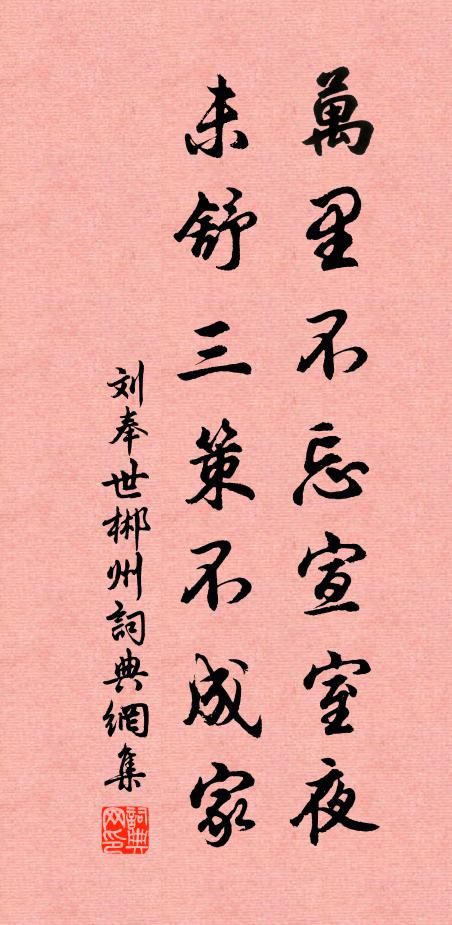 萬里不忘宣室夜
未舒三策不成家
刘奉世郴州詞典網集
詞典网印